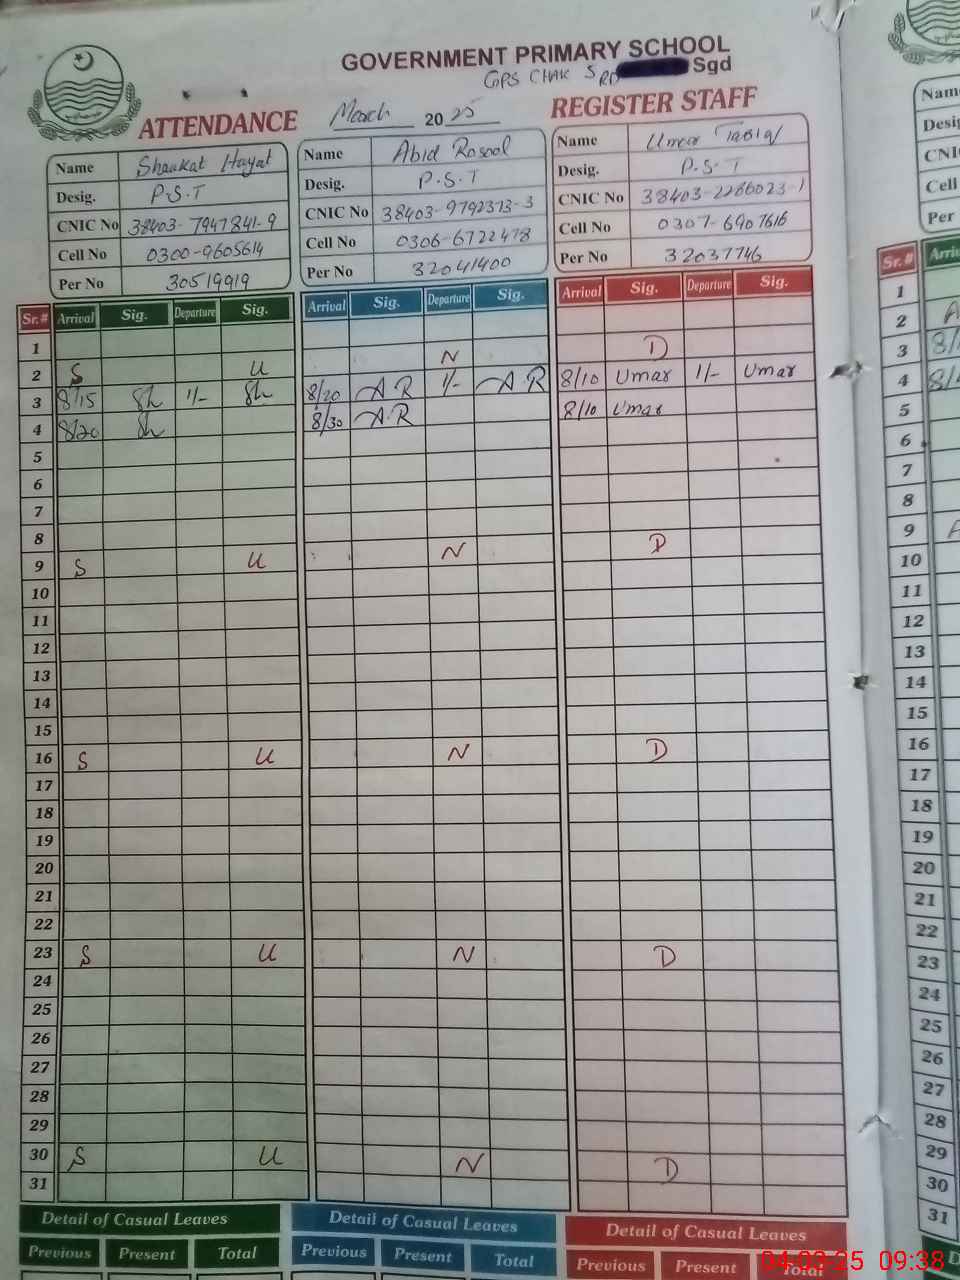 GOVERNMENT PRIMARY SCHOOL
GPS CHAK 5 RD Sgd
ATTENDANCE March 2025 REGISTER STAFF
Name Shaukat Hayat
Desig. P.S.T
CNIC No 38403-7947841-9
Cell No 0300-9605614
Per No 30519919
Name Abid Rasool
Desig. P.S.T
CNIC No 38403-9792313-3
Cell No 0306-6722478
Per No 32041400
Name Umar
Desig. P.S.T
CNIC No 38403-2286023-1
Cell No 0307-6907616
Per No 32037746
Sr.# Arrival Sig. Departure Sig. Arrival Sig. Departure Sig. Arrival Sig. Departure Sig.
1
2 S U N D
3 8/15 Sh 1/- Sh 8/20 A.R 1/- A.R 8/10 Umar 1/- Umar
4 8/20 Sh 8/30 A.R 8/10 Umar
5
6
7
8
9 S U N D
10
11
12
13
14
15
16 S U N D
17
18
19
20
21
22
23 S U N D
24
25
26
27
28
29
30 S U N D
31
Detail of Casual Leaves Detail of Casual Leaves Detail of Casual Leaves
Previous Present Total Previous Present Total Previous Present Total
Name
Desig
CNI
Cell
Per
Sr.# Arri
1
2 A
3 8/
4 8/
5
6
7
8
9 A
10
11
12
13
14
15
16
17
18
19
20
21
22
23
24
25
26
27
28
29
30
31
D
04-03-25 09:38